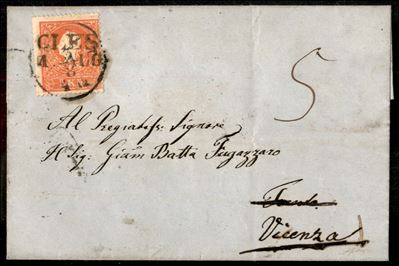 CLES
4 AUG
5
Al Pregiatiss: Signore
Il Sig: Giam Batta Fogazzaro
Vicenza